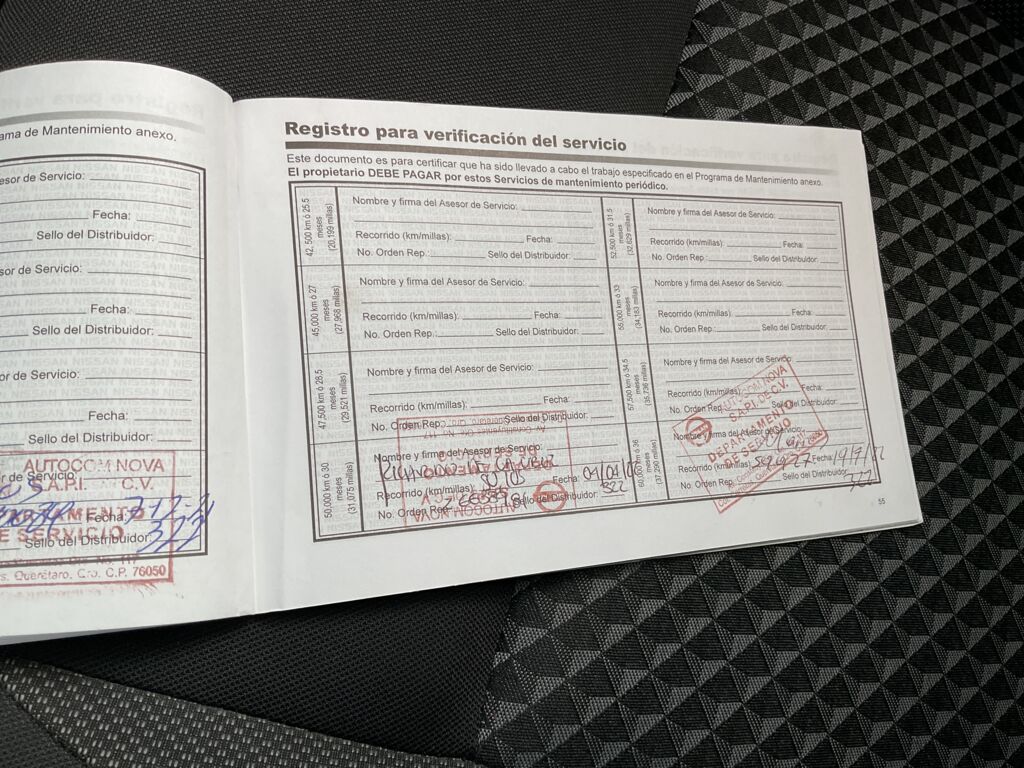 ama de Mantenimiento anexo.
esor de Servicio:
Fecha:
Sello del Distribuidor:
sor de Servicio:
Fecha:
Sello del Distribuidor:
or de Servicio:
Fecha:
Sello del Distribuidor:
AUTOCOM NOVA
r de Servicio:
S.A.P.I. C.V.
Fecha:
DEPARTAMENTO
DE SERVICIO
Sello del Distribuidor:
322
Querétaro, Qro. C.P. 76050
Registro para verificación del servicio
Este documento es para certificar que ha sido llevado a cabo el trabajo especificado en el Programa de Mantenimiento anexo.
El propietario DEBE PAGAR por estos Servicios de mantenimiento periódico.
42,500 km ó 25.5
meses
(20,199 millas)
Nombre y firma del Asesor de Servicio:
Recorrido (km/millas): Fecha:
No. Orden Rep.: Sello del Distribuidor:
45,000 km ó 27
meses
(27,968 millas)
Nombre y firma del Asesor de Servicio:
Recorrido (km/millas): Fecha:
No. Orden Rep.: Sello del Distribuidor:
47,500 km ó 28.5
meses
(29,521 millas)
Nombre y firma del Asesor de Servicio:
Recorrido (km/millas): Fecha:
No. Orden Rep.: Sello del Distribuidor:
50,000 km ó 30
meses
(31,075 millas)
Nombre y firma del Asesor de Servicio:
Recorrido (km/millas): Fecha:
No. Orden Rep.: Sello del Distribuidor: 322
AUTOCOM NOVA
52,500 km ó 31.5
meses
(32,629 millas)
Nombre y firma del Asesor de Servicio:
Recorrido (km/millas): Fecha:
No. Orden Rep.: Sello del Distribuidor:
55,000 km ó 33
meses
(34,183 millas)
Nombre y firma del Asesor de Servicio:
Recorrido (km/millas): Fecha:
No. Orden Rep.: Sello del Distribuidor:
57,500 km ó 34.5
meses
(35,736 millas)
Nombre y firma del Asesor de Servicio:
Recorrido (km/millas): Fecha:
No. Orden Rep.: Sello del Distribuidor:
60,000 km ó 36
meses
(37,290 millas)
Nombre y firma del Asesor de Servicio:
Recorrido (km/millas): Fecha:
No. Orden Rep.: Sello del Distribuidor:
AUTOCOM NOVA
S.A.P.I. DE C.V.
DEPARTAMENTO
DE SERVICIO
55